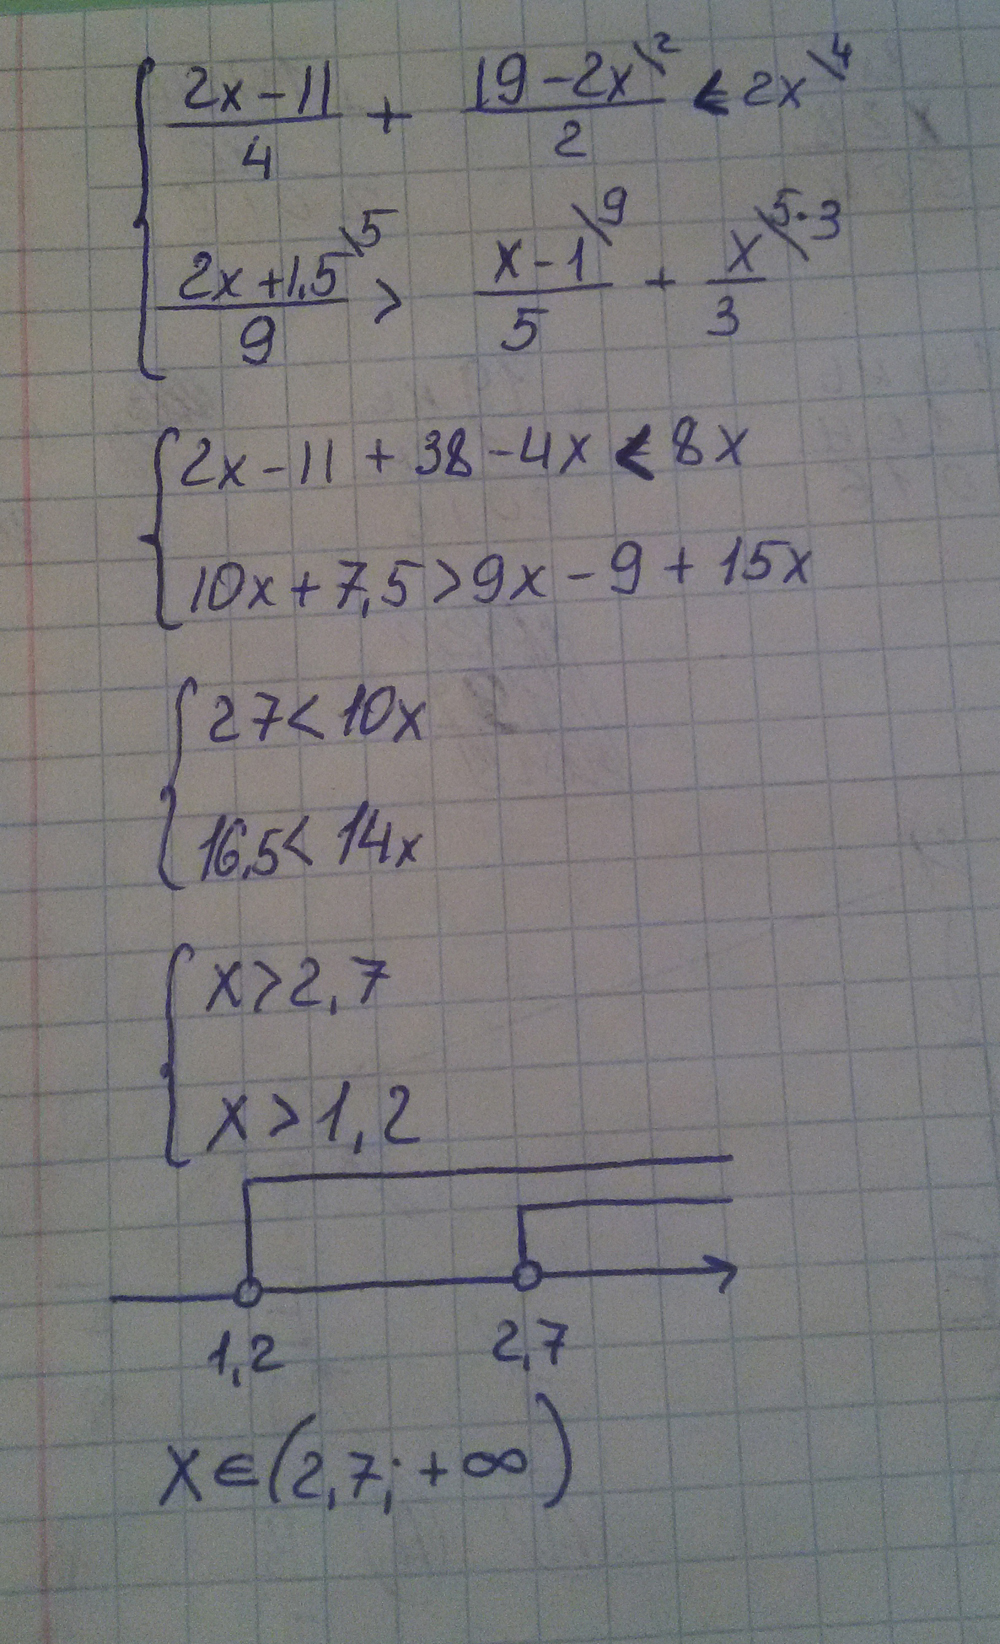 { (2x-11)/4 + (19-2x\2)/2 < 2x\4
(2x+1,5\5)/9 > (x-1\9)/5 + x\5·3/3
{ 2x-11+38-4x < 8x
10x+7,5>9x-9+15x
{ 27<10x
16,5<14x
{ x>2,7
x>1,2
1,2 2,7
x∈(2,7;+∞)